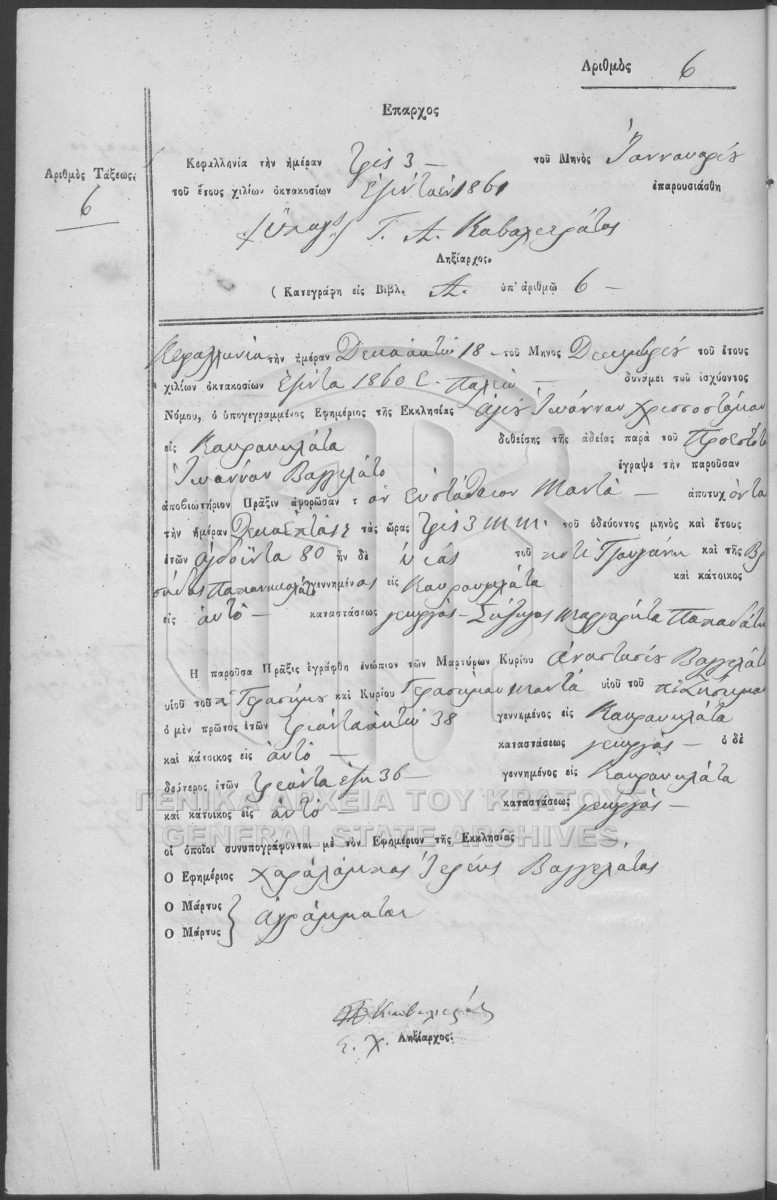 Αριθμὸς 6
Επαρχος
Αριθμὸς Τάξεως. 6
Κεφαλληνία τὴν ἡμέραν τρὶς 3 — τοῦ Μηνὸς Ἰαννουαρίου
τοῦ ἔτους χιλίων ὀκτακοσίων ἑξῆντα ἑν 1861 ἐπαρουσιάσθη
Γ. Δ. Καβαλιεράτος
Ληξίαρχος.
( Κατεγράφη εἰς Βιβλ. Α. ὑπ' ἀριθμῷ 6 —
Κεφαλληνία τὴν ἡμέραν Δεκαὀκτώ 18 — τοῦ Μηνος Δεκεμβρίου τοῦ ἔτους
χιλίων ὀκτακοσίων ἑξῆντα 1860 Ε. Παλαιὸ — δυνάμει τοῦ ἰσχύοντος
Νόμου, ὁ ὑπογεγραμμένος Ἐφημέριος τῆς Εκκλησίας Ἁγίου Ἰωάννου Χρισοστόμου
εἰς Κουρουκλάτα δοθείσης τῆς ἀδείας παρὰ τοῦ Προεστότ
Ἰωάννου Βαγγελάτο ἔγραψε τὴν παροῦσαν
ἀποβιωτήριον Πρᾶξιν ἀφορῶσαν τ ὸν Εὐστάθειον Μαντᾶ — ἀποτυχ όντα
τὴν ἡμέραν Δεκαεπτὰ 17 τὰς ὥρας τρὶς 3 Μ.Μ. τοῦ ὁδεύοντος μηνὸς καὶ ἔτους
ἐτῶν ὀγδοῆντα 80 ἦν δὲ ὑιὸς τοῦ ποτὲ Τζουγάνη καὶ τῆς Βρ
σιάδας Παπανικολάτο γεννημένος εἰς Κουρουκλάτα καὶ κάτοικος
εἰς ἀυτὸ — καταστάσεως γεωργὸς — Σύζυγος Μαργαρήτα Παπαδάτη
Η παροῦσα Πρᾶξις ἐγράφθη ἐνώπιον τῶν Μαρτύρων Κυρίου Ἀναστασίου Βαγγελάτ
υἱοῦ τοῦ π. Γερασίμου καὶ Κυρίου Γερασίμου Μαντᾶ υἱοῦ τοῦ π. Ζησίμου
ὁ μὲν πρῶτος ἐτῶν τριάνταὀκτώ 38 γεννημένος εἰς Κουρουκλάτα
καὶ κάτοικος εἰς ἀυτὸ — καταστάσεως γεωργὸς — ὁ δὲ
δεύτερος ἐτῶν τριάντα ἕξη 36 — γεννημένος εἰς Κουρουκλάτα
καὶ κάτοικος εἰς ἀυτὸ — καταστάσεως γεωργὸς —
ΓΕΝΙΚΑ ΑΡΧΕΙΑ ΤΟΥ ΚΡΑΤΟΥΣ
GENERAL STATE ARCHIVES
οἱ ὁποῖοι συνυπογράφονται μὲ τὸν Εφημέριον τῆς Εκκλησίας
Ο Εφημέριος Χαράλαμπος Ἱερεὺς Βαγγελάτος
Ο Μάρτυς
Ο Μάρτυς } ἀγράμματοι
Καβαλιεράτος
Ληξίαρχος.